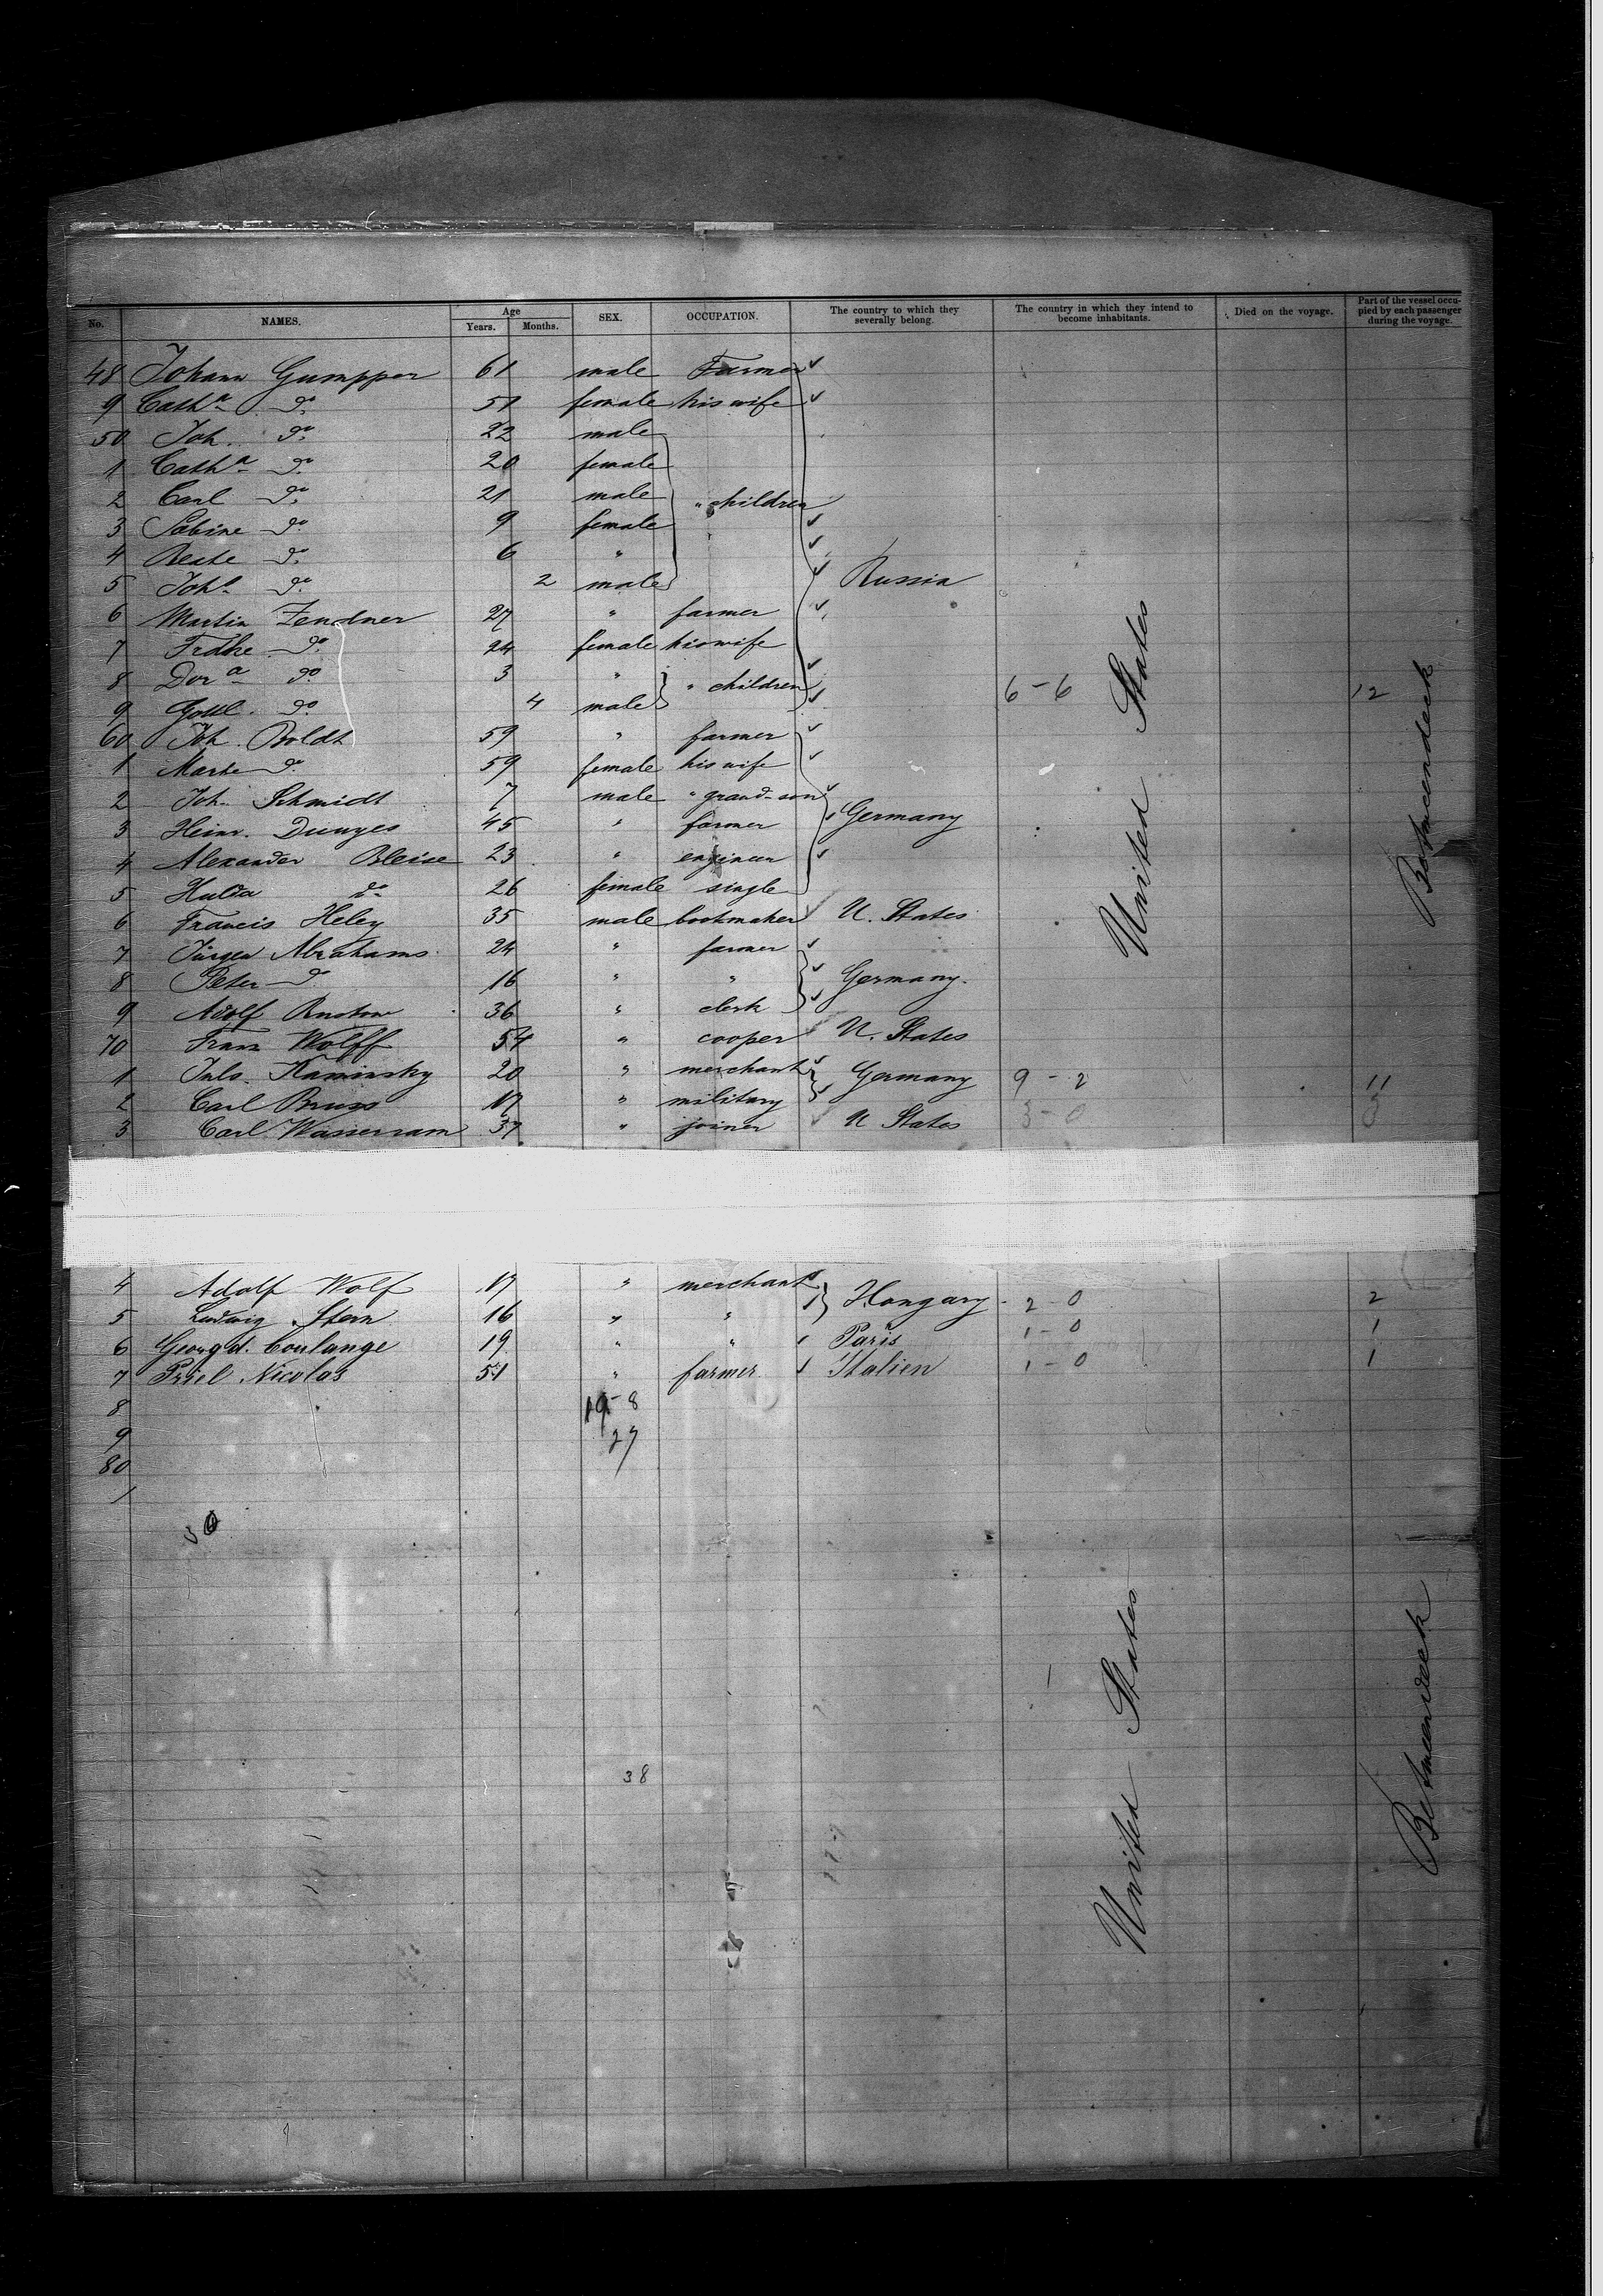 No. NAMES. Age Years. Months. SEX. OCCUPATION. The country to which they severally belong. The country in which they intend to become inhabitants. Died on the voyage. Part of the vessel occupied by each passenger during the voyage.
48 Johann Gumpper 61 male Farmer
9 Catha do 51 female his wife
50 Joh. do 22 male
1 Catha do 20 female
2 Carl do 21 male " children
3 Sabine do 9 female
4 Beate do 6 "
5 Joh. do 2 male Russia
6 Martin Zendner 27 " farmer
7 Frdke do 24 female his wife
8 Dora do 3 " " children 6-6 12
9 Gottl. do 4 male
60 Joh. Boldt 59 " farmer
1 Marte do 59 female his wife
2 Joh. Schmidt 7 male " grand-son
3 Heinr. Duuyes 45 " farmer Germany
4 Alexander Bleise 23 " engineer
5 Hulda do 26 female single
6 Francis Heley 35 male bootmaker U. States
7 Jürgen Abrahams 24 " farmer
8 Peter do 16 " " Germany.
9 Adolf Rustow 36 " clerk
70 Franz Wolff 54 " cooper U. States
1 Juls. Kaminsky 20 " merchant Germany 9-2 11
2 Carl Bruss 17 " military
3 Carl Wasserram 37 " joiner U States 3-0 3
United States
Betweendeck
4 Adolf Wolf 17 " merchant
5 Ludwig Stern 16 " " Hongary 2-0 2
6 Georg d. Coulange 19 " " Paris 1-0 1
7 Priel Nicolas 51 " farmer Italien 1-0 1
8 19-8
9 27
80
1
38
United States
Betweendeck